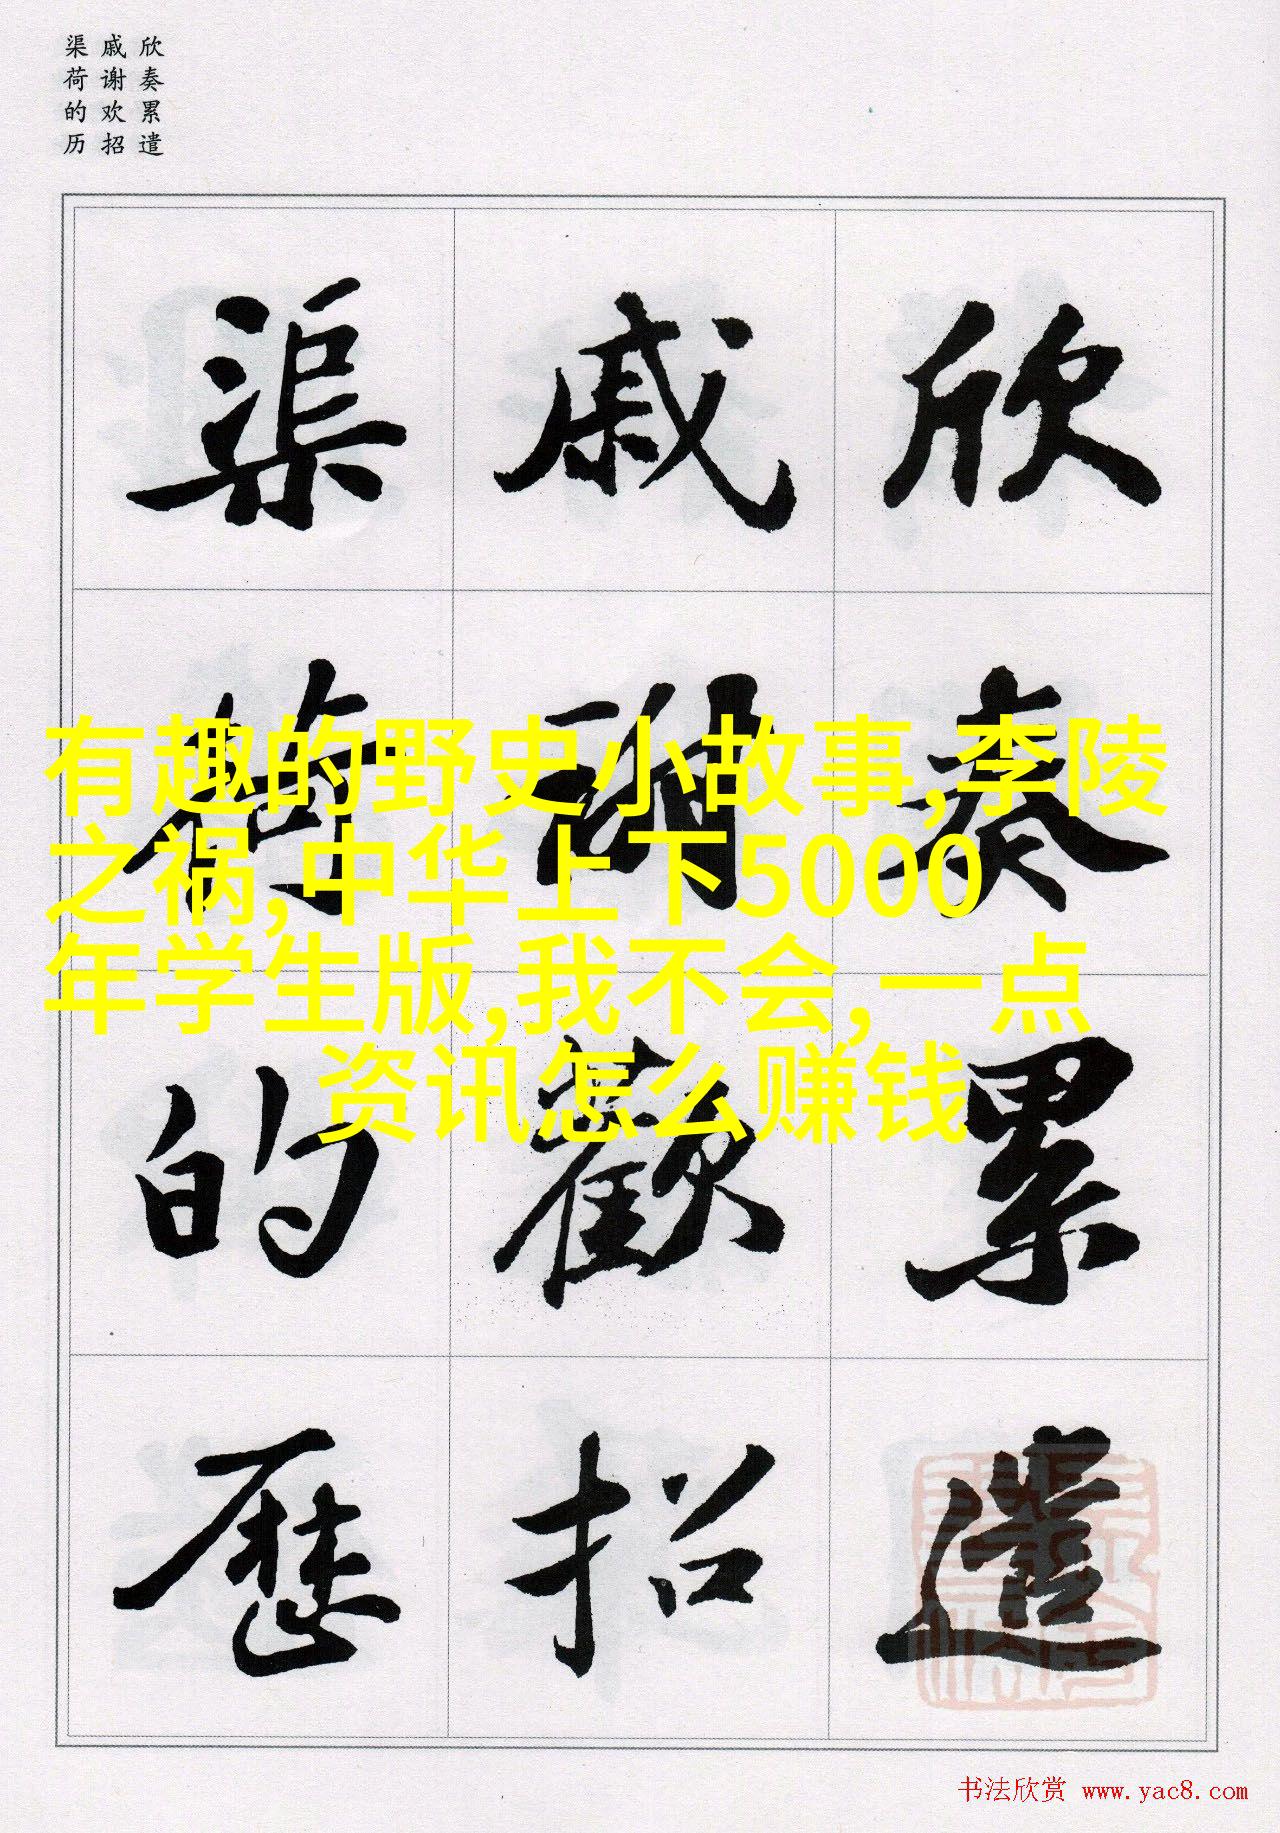 欣奏累遣
戚谢欢招
渠荷的历
欣奏累遣
慼謝歡招
渠荷的歷
有趣的野史小故事,李陵
之祸,中华上下5000
年学生版,我不会,一点
资讯怎么赚钱
书法欣赏 www.yac8.com